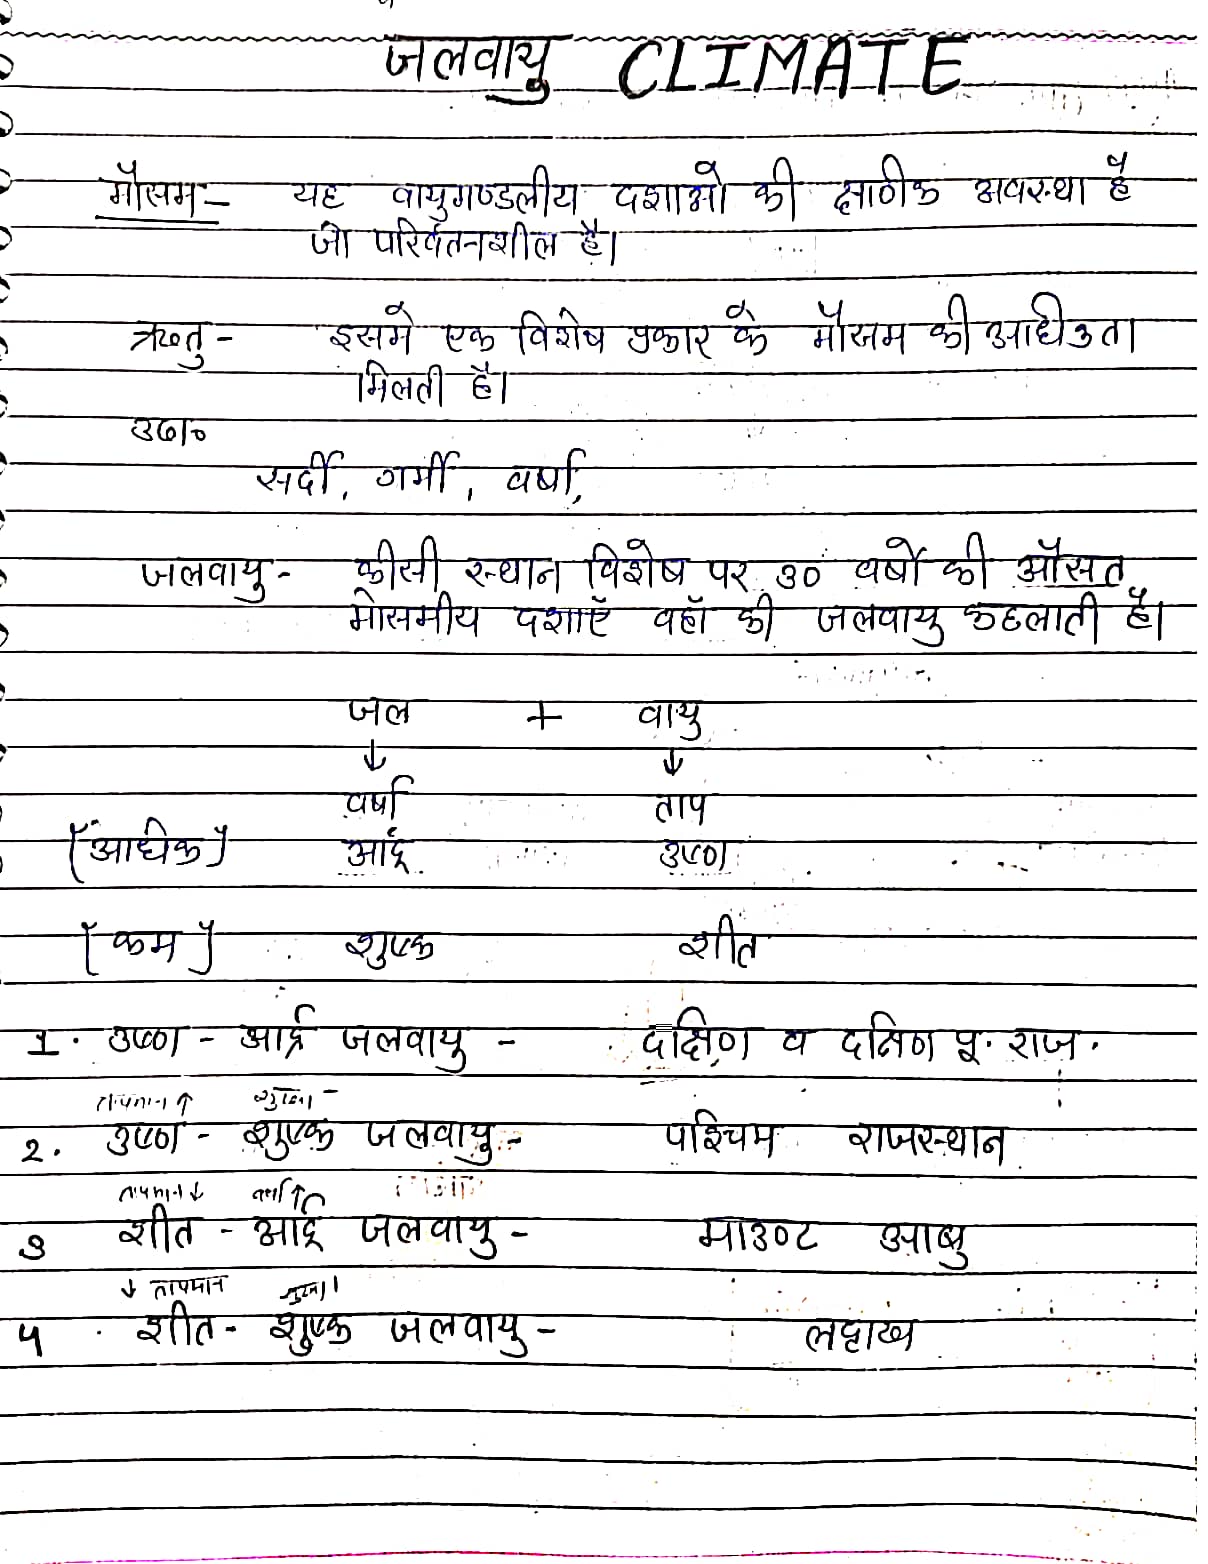 जलवायु CLIMATE
मौसम:- यह वायुमण्डलीय दशाओ की क्षाणीक अवस्था है
जो परिर्वतनशील है।
ऋतु - इसमे एक विशेष प्रकार के मौसम की आधिकता
मिलती है।
उदा०
सर्दी, गर्मी, वर्षा,
जलवायु - कीसी स्थान विशेष पर 30 वर्षो की औसत
मोसमीय दशाएँ वहाँ की जलवायु कहलाती है।
जल + वायु
↓ ↓
वर्षा ताप
[आधिक] आर्द्र उष्ण
[कम] शुष्क शीत
1. उष्ण - आर्द्र जलवायु - दक्षिण व दक्षिण पू. राज.
तापमान ↑ शुष्कता -
2. उष्ण - शुष्क जलवायु - पश्चिम राजस्थान
तापमान ↓ वर्षा ↑
3 शीत - आर्द्र जलवायु - माउण्ट आबु
↓ तापमान
4 . शीत - शुष्क जलवायु - लद्दाख